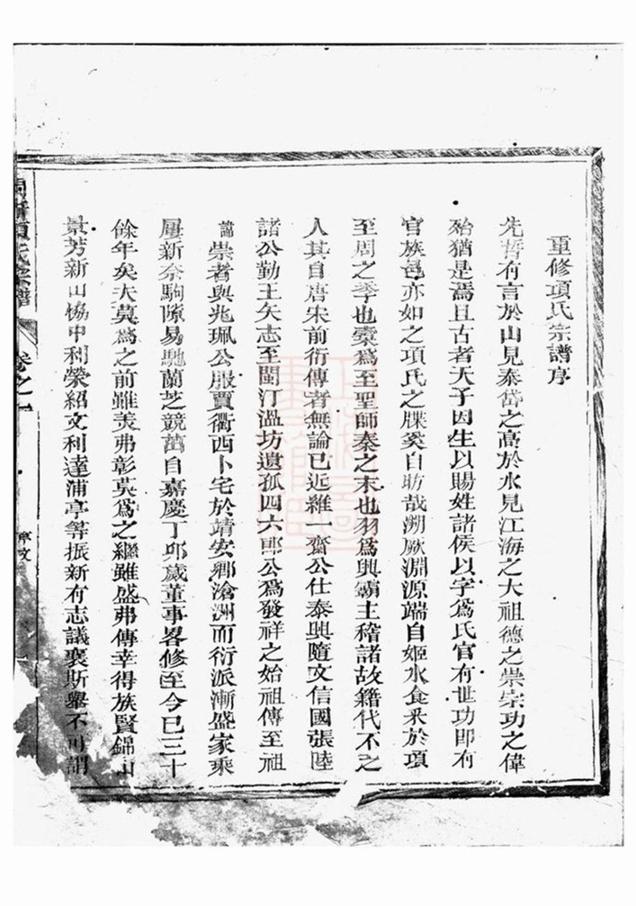 重修項氏宗譜序
先哲有言於山見泰岱之高於水見江海之大祖德之崇宗功之偉
殆猶是焉且古者天子因生以賜姓諸侯以字爲氏官有世功即有
官族邑亦如之項氏之牒奚自昉哉溯厥淵源端自姬水食釆於項
至周之季也橐爲至聖師秦之末也羽爲興霸主稽諸故籍代不乏
人其自唐宋前衍傳者無論已近維一齋公仕泰興隨文信國張陸
諸公勤王矢志至閩汀溫坊遺孤四六郎公爲發祥之始祖傳至祖
諱崇者與兆珮公服賈衢西卜宅於靖安鄉滄洲而衍派漸盛家乘
屢新奈駒隙易馳蘭芝競茁自嘉慶丁卯歲董事畧修至今已三十
餘年矣夫莫爲之前雖美弗彰莫爲之繼雖盛弗傳幸得族賢錦山
景芳新山協中利榮紹文利達浦亭等振新有志議襄斯舉不可謂
項氏宗譜
卷之一